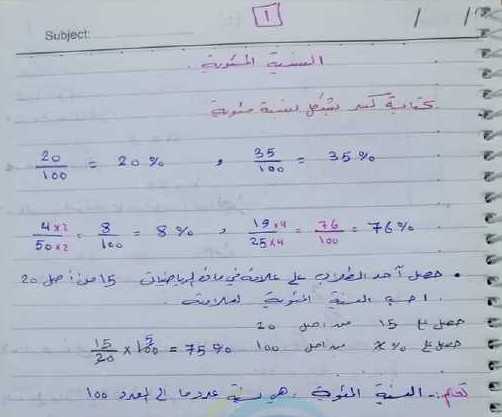 1
/ /
Subject:
النسبة المئوية.
كتابة كسر بشكل نسبة مئوية
20/100 = 20 % , 35/100 = 35 %
4×2/50×2 = 8/100 = 8 % , 19×4/25×4 = 76/100 = 76 %
• حصل أحد الطلاب على علامة في مادة الرياضيات 15 من أصل 20
احسب النسبة المئوية لعلامته.
حصل على 15 من أصل 20
حصل على x% من أصل 100 15/20 × 100 5 = 75 %
تعلم:- النسبة المئوية، هي نسبة عدد ما إلى العدد 100